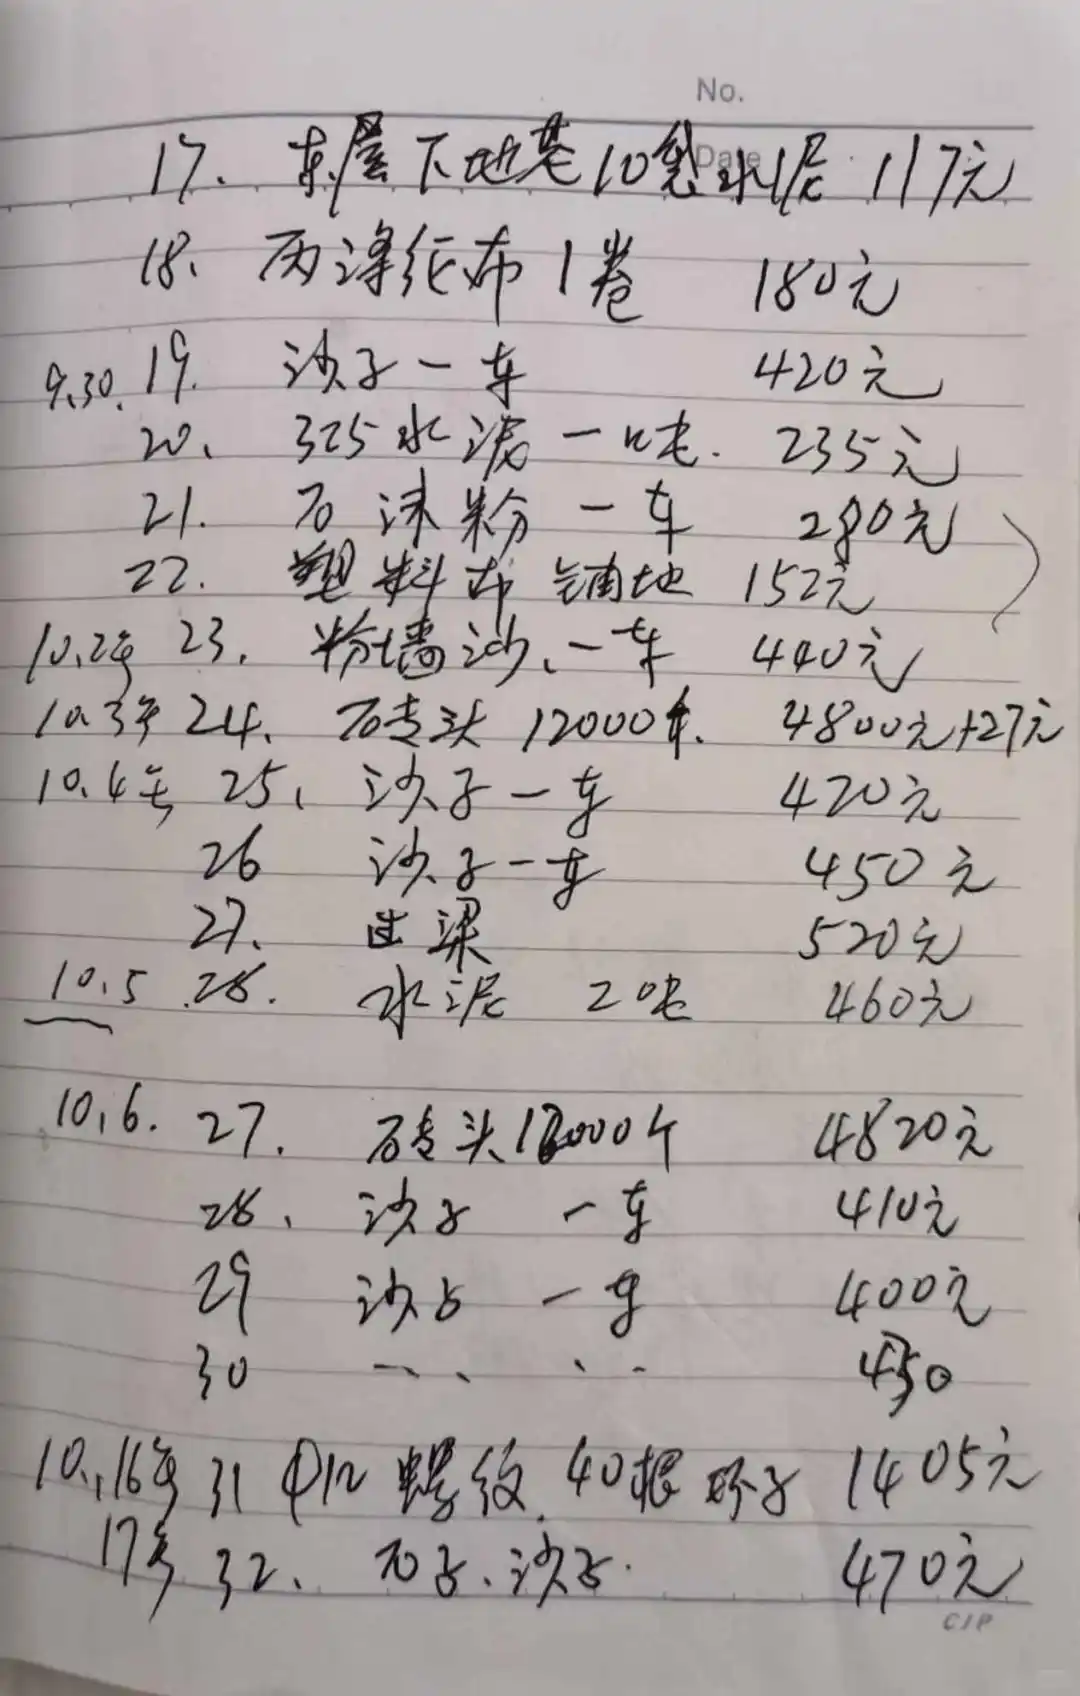 No.
Date
17. 东屋下地基10袋水泥 117元
18、 两涤纶布1卷 180元
9.30. 19. 沙子一车 420元
20、 325水泥一吨. 235元
21. 石沫粉一车 280元
22. 塑料布铺地 152元
10.2号 23. 粉墙沙、一车 440元
10.3号 24、 砖头 12000个. 4800元+27元
10.4号 25、 沙子一车 420元
26 沙子一车 450元
27. 过梁 520元
10.5 28. 水泥 2吨 460元
10.6. 27. 砖头12000个 4820元
28、 沙子 一车 410元
29 沙子 一车 400元
30 450
10.16号 31 Φ12 螺纹. 40根 环子 1405元
17号 32、 石子、沙子. 470元
C/P